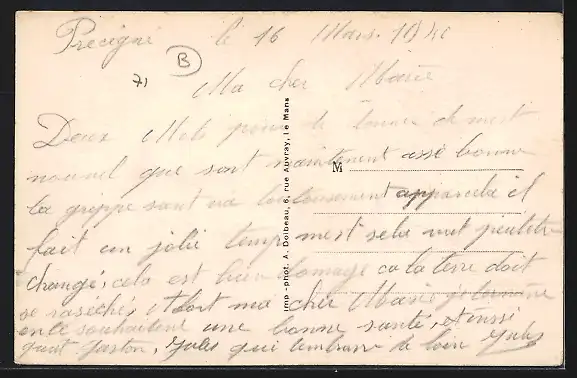 Precigné le 16 Mars 1940
71 B
Ma cher Marie
Deux Mots pour te donner de mest
nouvel que sont maintenant assé bonne
la grippe sant va
fait un jolie temp mest sela vat peutetre
changé, cela est bien domage ca la terre doit
se raséché, Adort ma cher Marie je termine
en te souhaitent une bonne santé, et aussi
quant Gaston, Jules qui tembrasse de loin Jules
M
Imp.-phot. A. Dolbeau, 6, rue Auvray, Le Mans